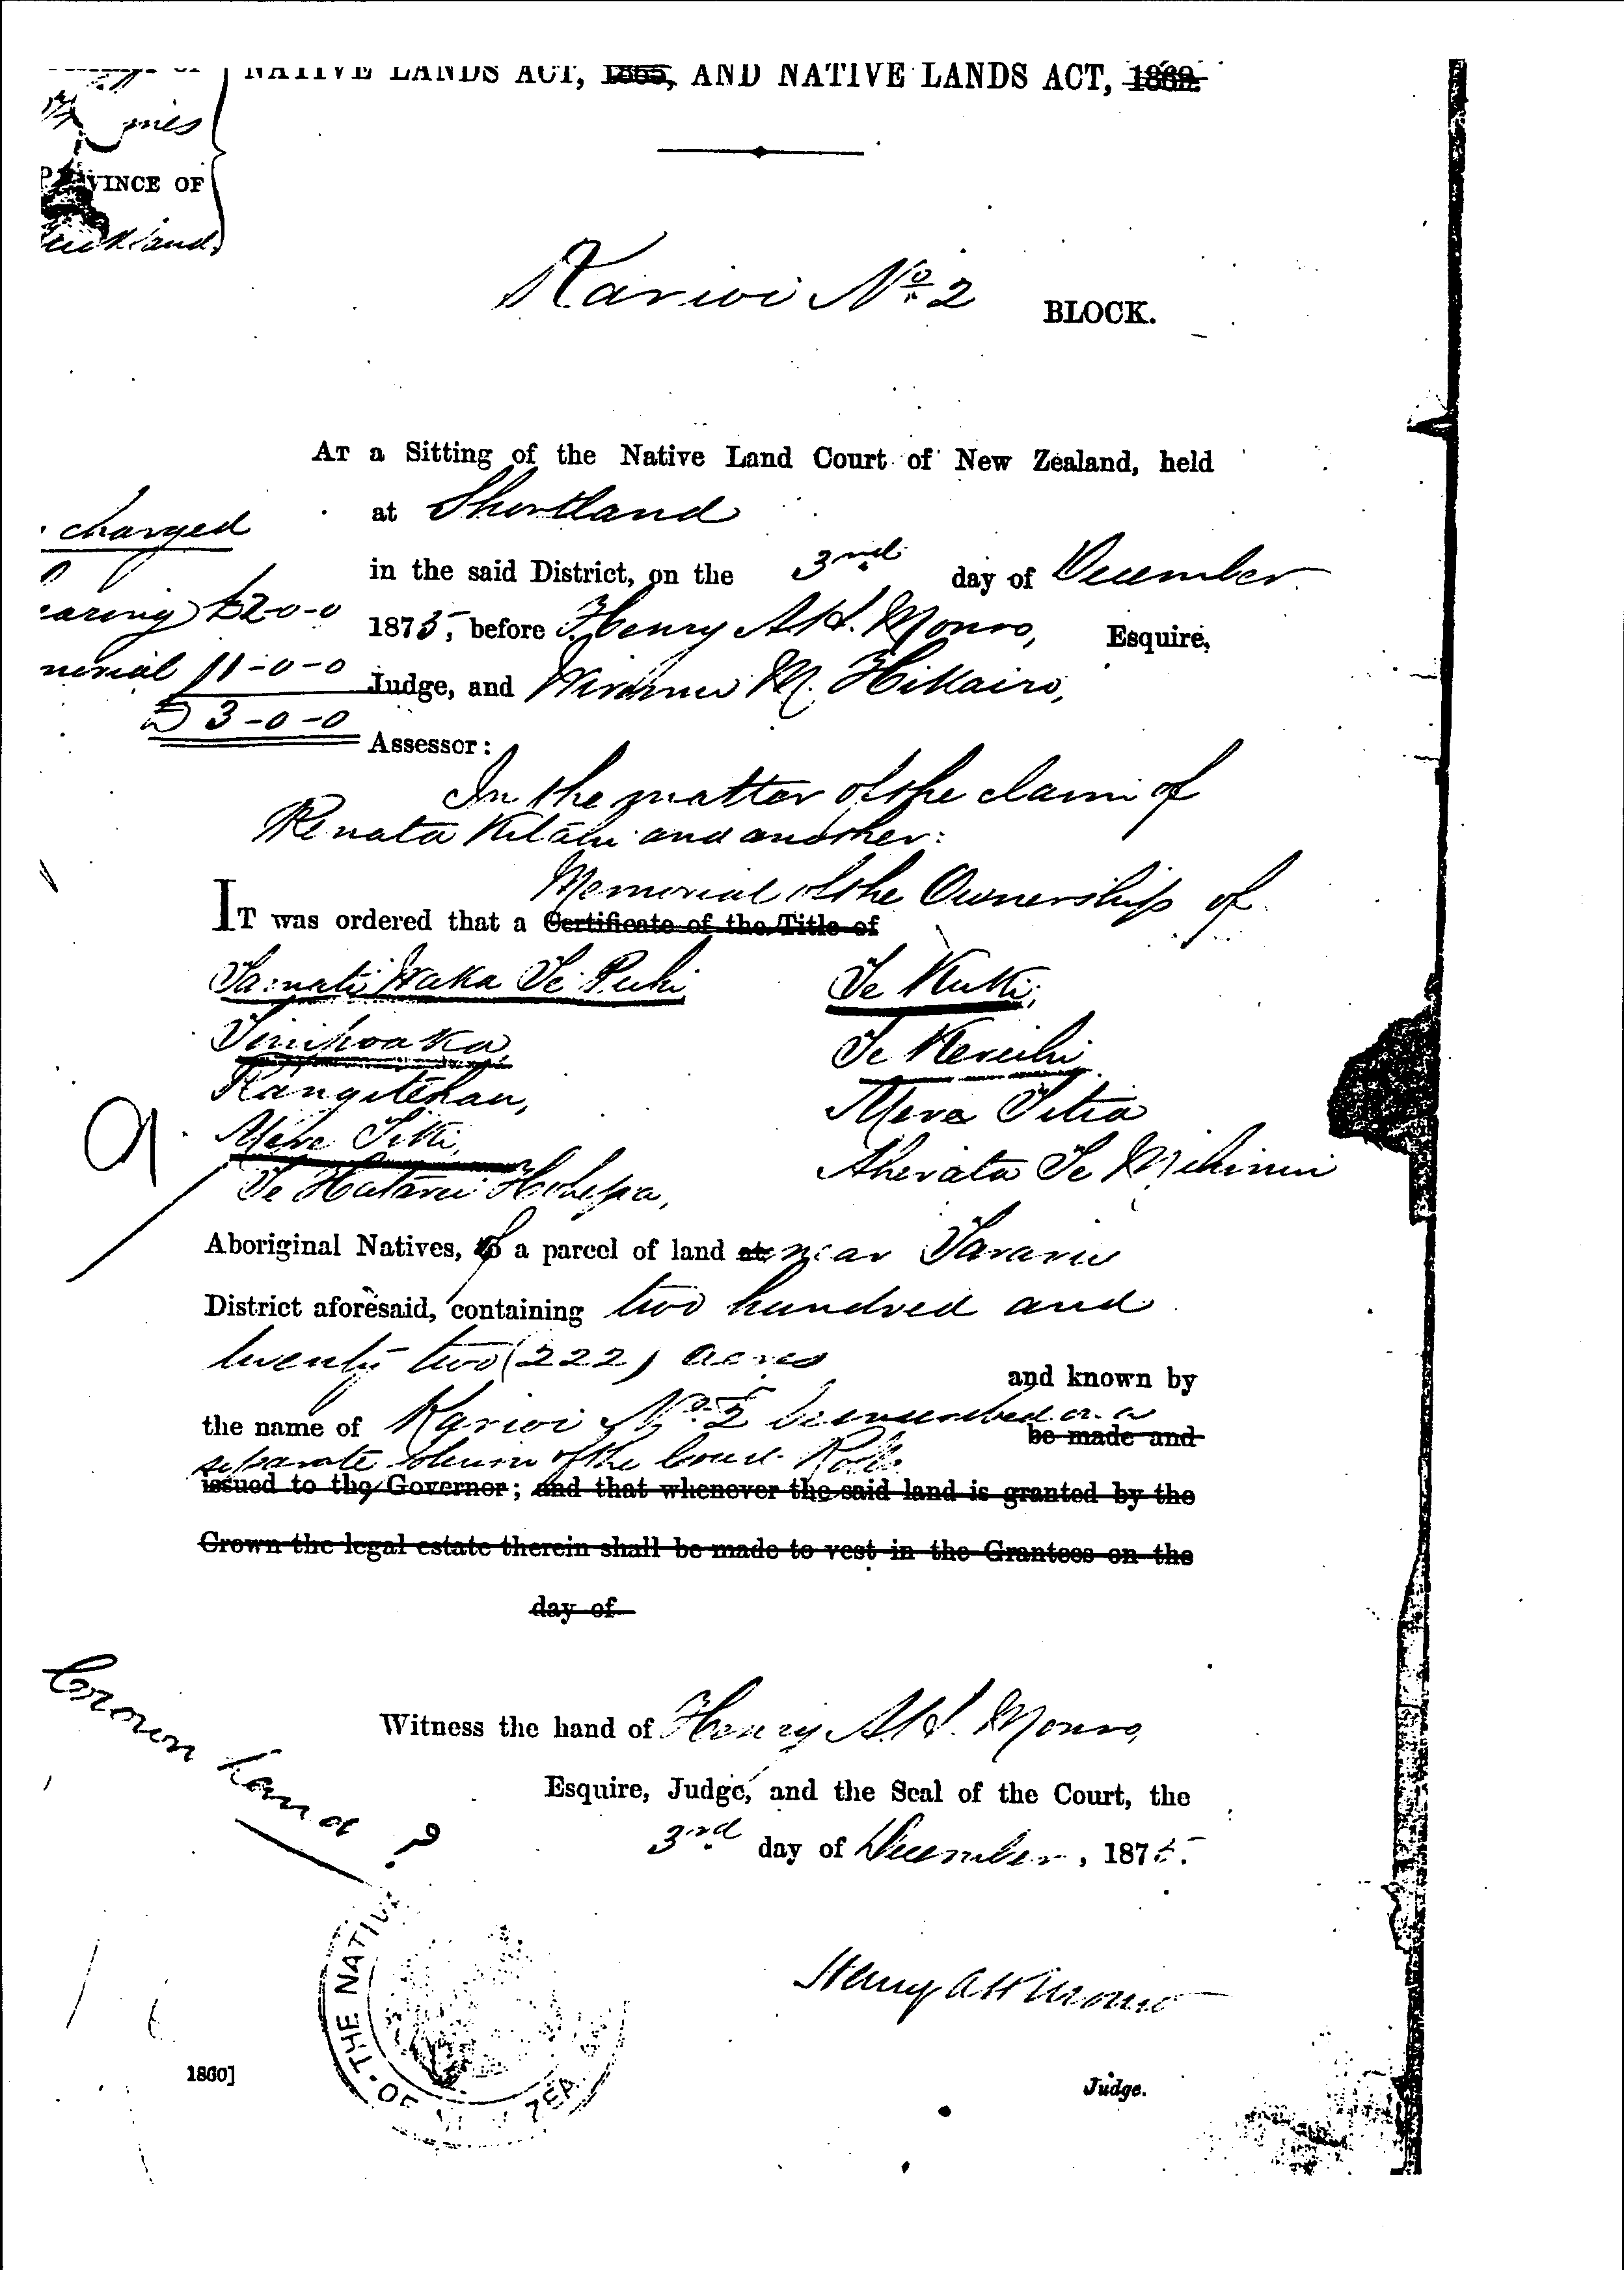 NATIVE LANDS ACT, 1865, AND NATIVE LANDS ACT, 1869.
PROVINCE OF
Auckland
Kariwi No. 2 BLOCK.
AT a Sitting of the Native Land Court of New Zealand, held
at Shortland
charged
in the said District, on the 3rd day of December
earing £2-0-0
1875, before Henry A. H. Monro, Esquire,
morial 1-0-0
Judge, and M. Hikairo,
£3-0-0
Assessor:
In the matter of the claim of
Renata and another:
Memorial of the Ownership of
IT was ordered that a Certificate of the Title of
Waka Te Puhi
Te Kuki,
Te
Rangitehau,
Mere Titia
Mere Tiki,
Aherata Te
Te Hohepa,
Aboriginal Natives, of a parcel of land at near Tararu
District aforesaid, containing two hundred and
twenty two (222) acres
and known by
the name of Kariwi No. 2 be on a
be made and
separate of the Court Rolls
issued to the Governor; and that whenever the said land is granted by the
Crown the legal estate therein shall be made to vest in the Grantees on the
day of
Crown Land ?
Witness the hand of Henry A. H. Monro,
Esquire, Judge, and the Seal of the Court, the
3rd day of December, 1875.
OF THE NATIVE ZEA
Henry A H Monro
1860]
Judge.